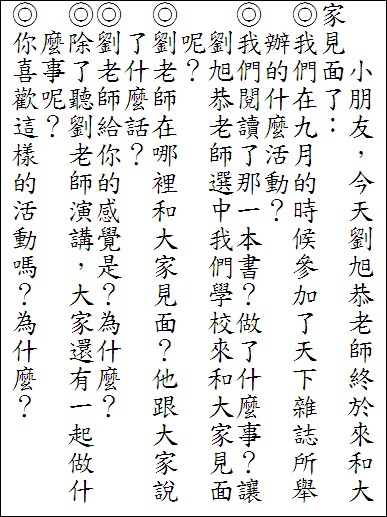 小朋友，今天劉旭恭老師終於來和大
家見面了：
◎我們在九月的時候參加了天下雜誌所舉
辦的什麼活動？
◎我們閱讀了那一本書？做了什麼事？讓
劉旭恭老師選中我們學校來和大家見面
呢？
◎劉老師在哪裡和大家見面？他跟大家說
了什麼話？
◎劉老師給你的感覺是？為什麼？
◎除了聽劉老師演講，大家還有一起做什
麼事呢？
◎你喜歡這樣的活動嗎？為什麼？